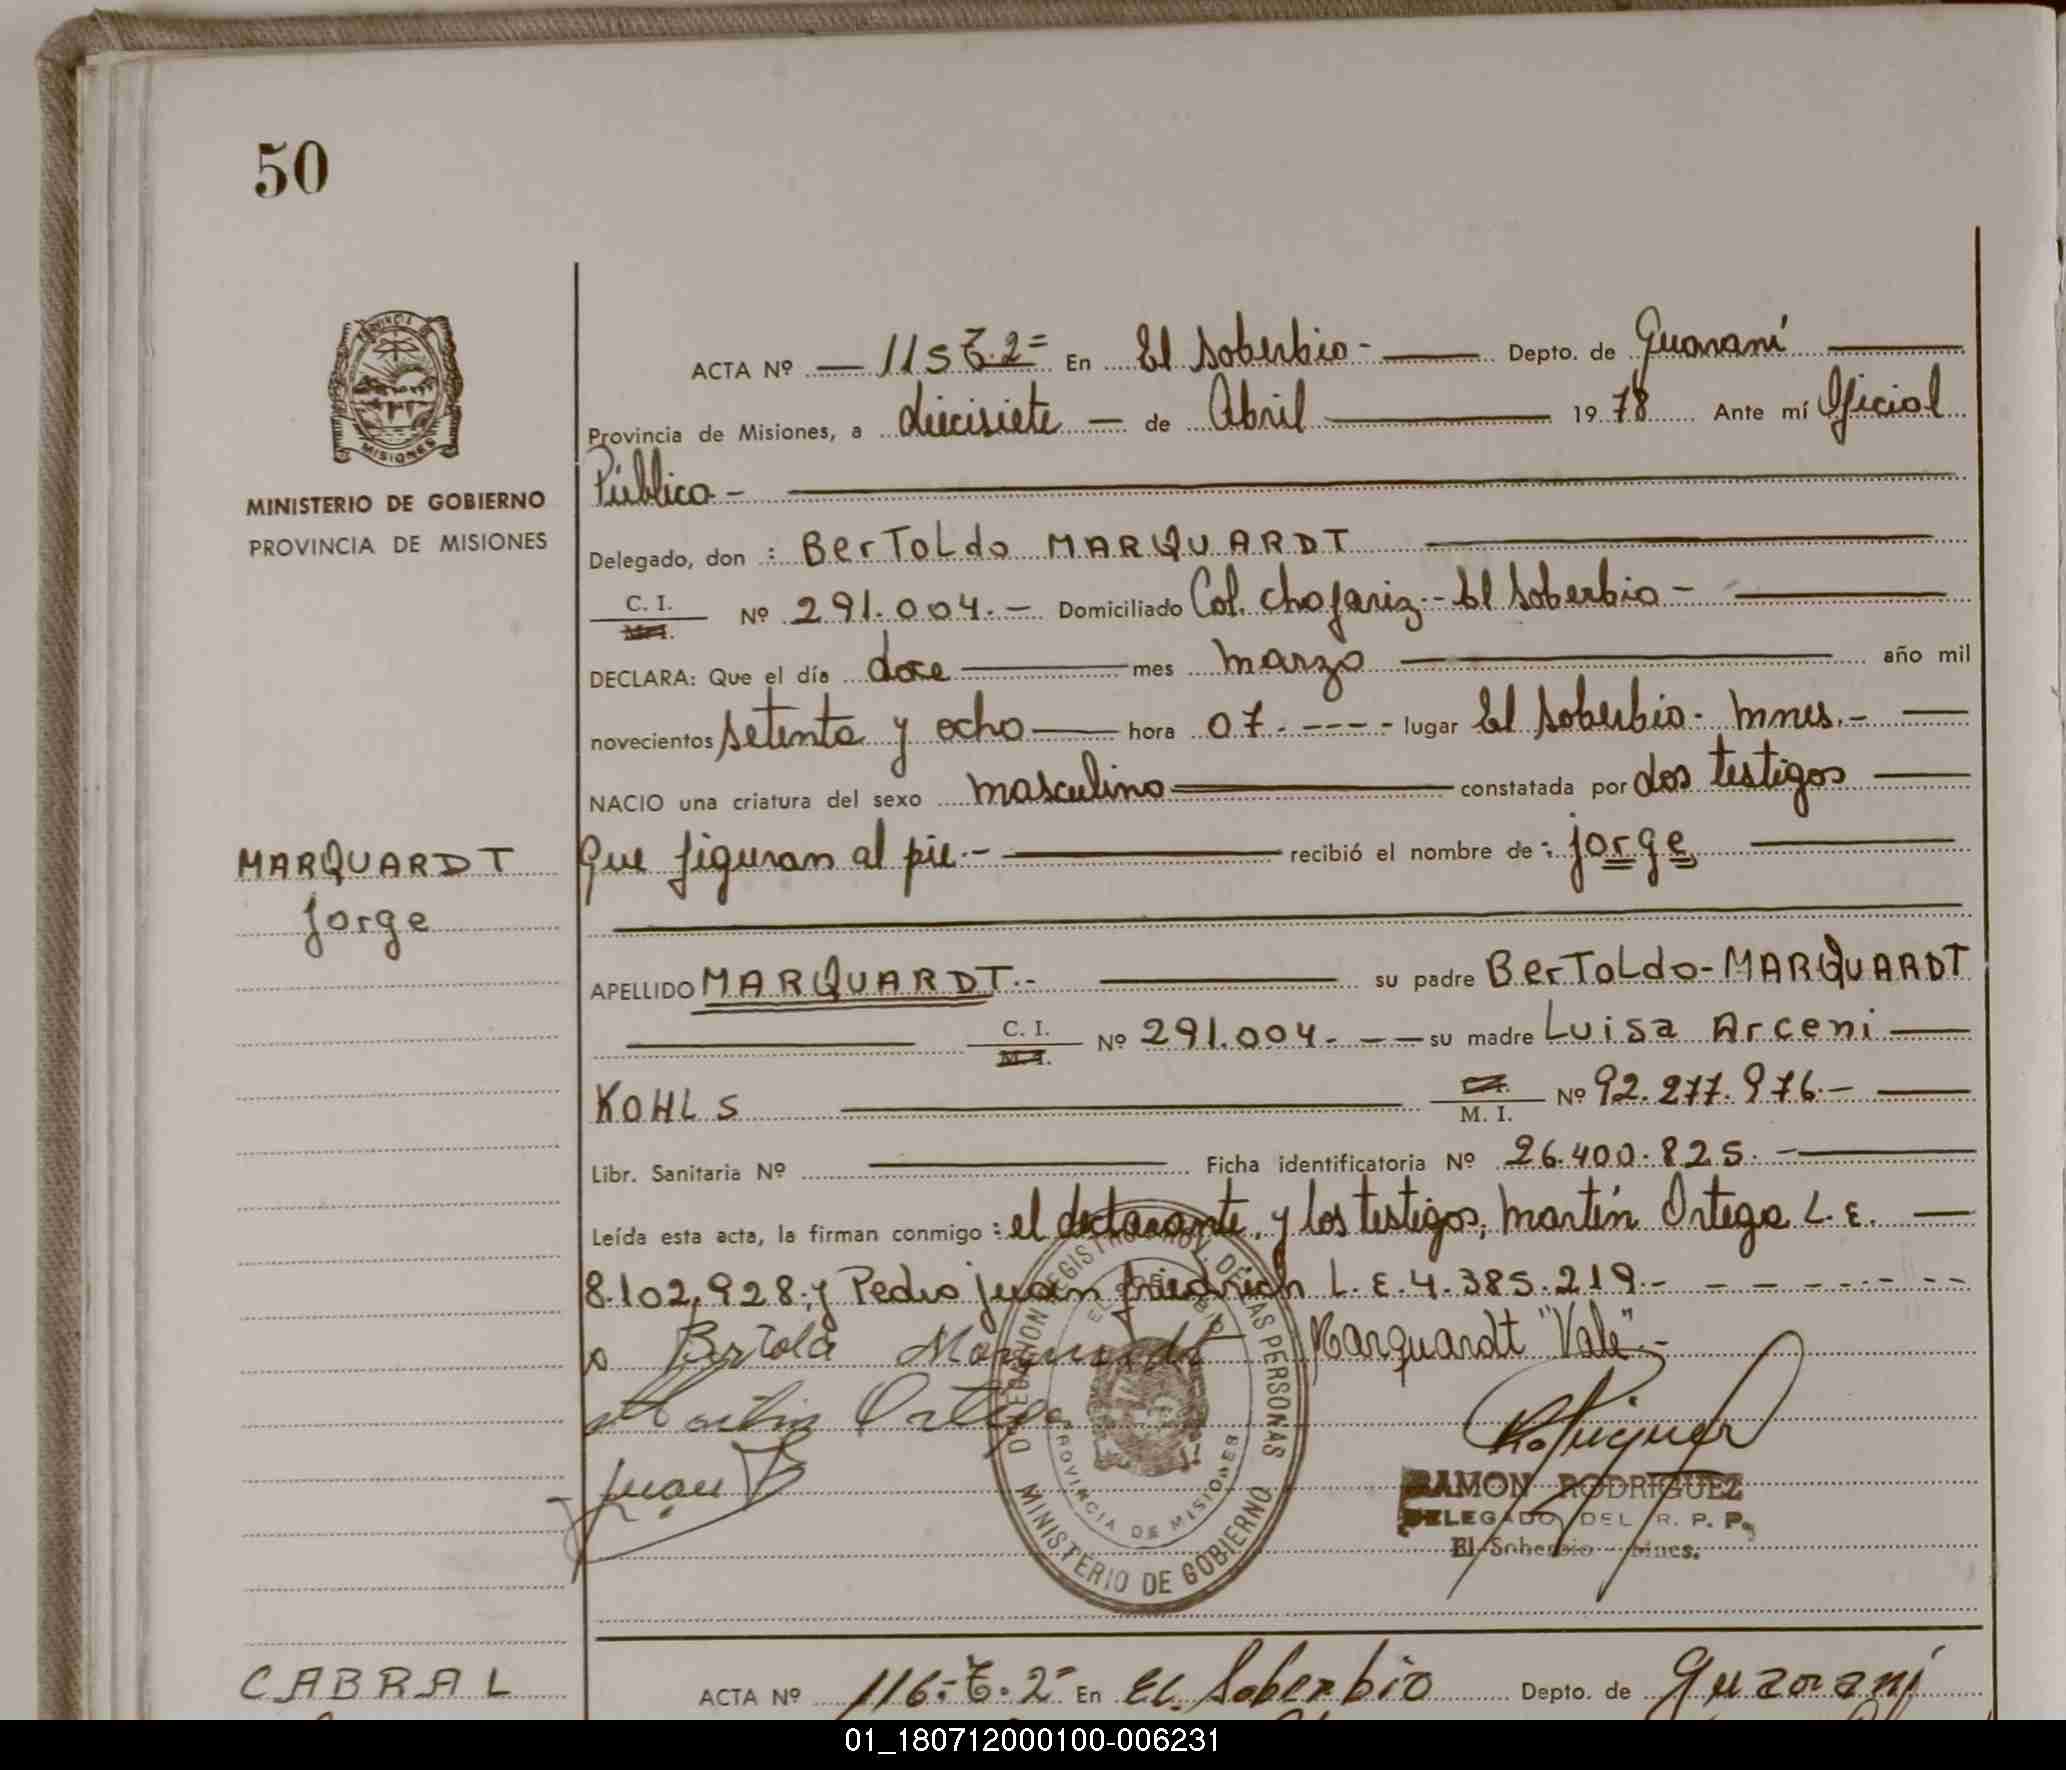 50
PROVINCIA DE
MISIONES
MINISTERIO DE GOBIERNO
PROVINCIA DE MISIONES
ACTA Nº 115 T. 2º En El Soberbio - Depto. de Guaraní
Provincia de Misiones, a diecisiete de Abril 19 78 Ante mí Oficial
Público -
Delegado, don : BerToLdo MARQUARDT
C. I.
M. I. Nº 291.004.- Domiciliado Col. Chafariz.- El Soberbio -
DECLARA: Que el día doce mes marzo año mil
novecientos setenta y ocho hora 07. ---- lugar El Soberbio - Mnes.-
NACIO una criatura del sexo masculino constatada por dos testigos
MARQUARDT Que figuran al pie.- recibió el nombre de : jorge
jorge
APELLIDO MARQUARDT.- su padre BerToLdo - MARQUARDT
C. I.
M. I. Nº 291.004. - su madre Luisa Arceni
KOHLS C. I.
M. I. Nº 92.277.976.-
Libr. Sanitaria Nº Ficha identificatoria Nº 26.400.825. -
Leída esta acta, la firman conmigo : el declarante, y los testigos, Martín Ortega L. E.
8.102.928.y Pedro juan friedrich L. E. 4.385.219.-
Bertolo Marquardt Marquardt "Vale".-
Martin Ortega
juan F
DELEGACION REGISTRO PROV. DE LAS PERSONAS
EL SOBERBIO
PROVINCIA DE MISIONES
MINISTERIO DE GOBIERNO
RAMON RODRIGUEZ
DELEGADO DEL R. P. P.
El Soberbio - Mnes.
CABRAL ACTA Nº 116.- T. 2º En EL Soberbio Depto. de Guaraní
01_180712000100-006231